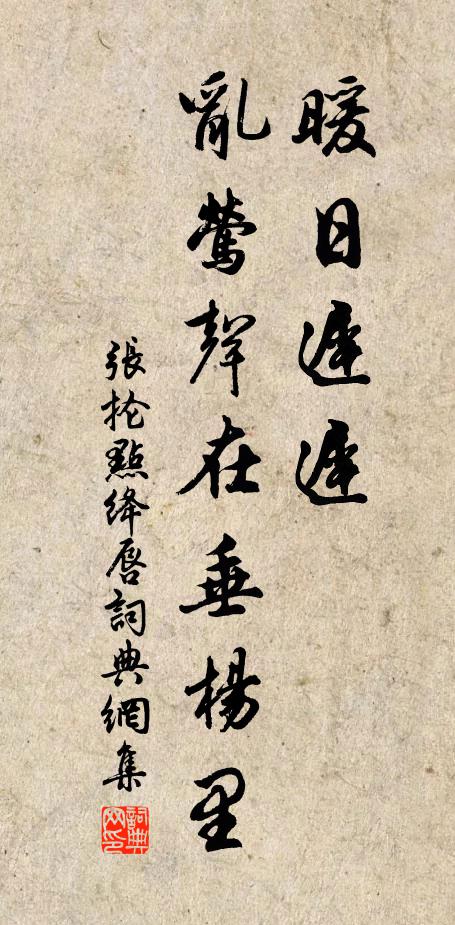 暖日遲遲
亂鶯聲在垂楊里
張掄點絳唇詞典網集
詞典网印